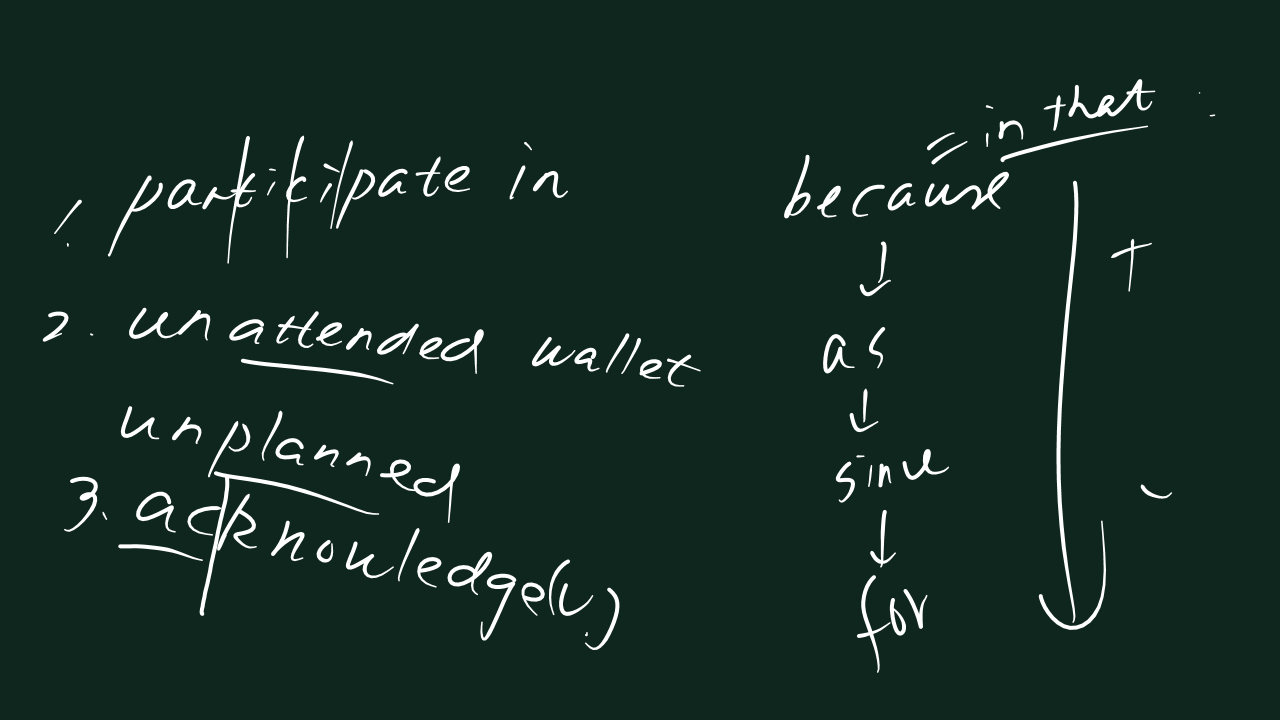 1. participate in
2. unattended wallet
unplanned
3. acknowledge(v.)
= in that
because
↓
as
↓
since
↓
for
+
-